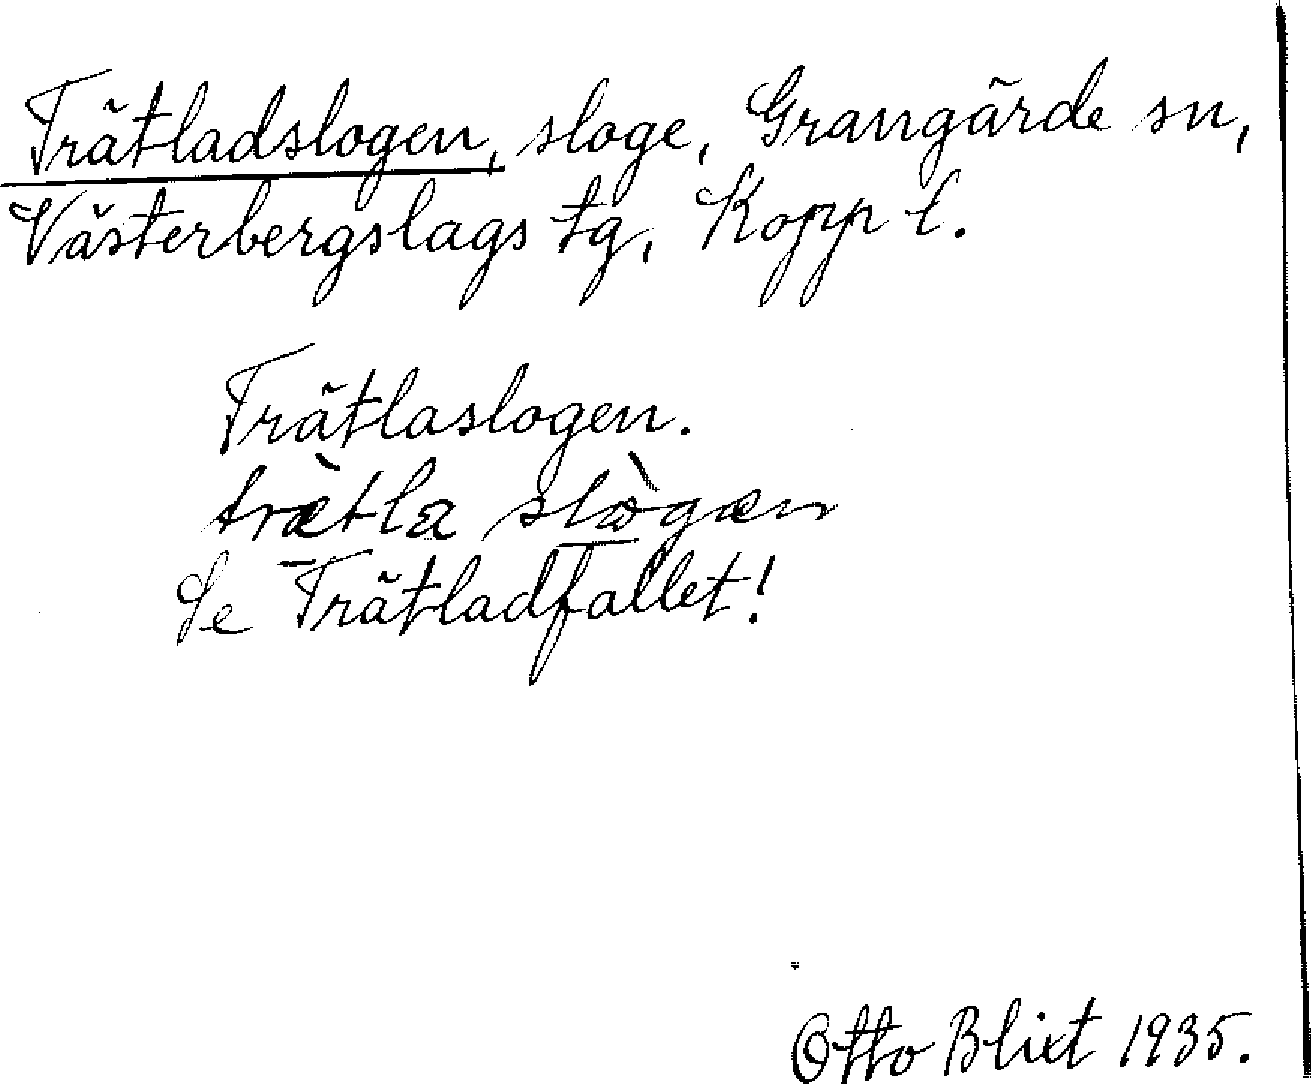 Trätladslogen, sloge, Grangärde sn,
Västerbergslags tg, Kopp l.
Trätlaslogen.
trætla slògæn
Se Trätladfallet!
Otto Blixt 1935.